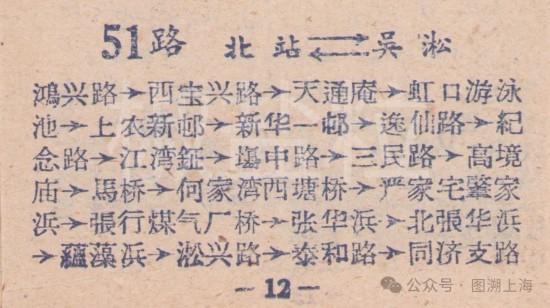 51路 北站⇄吳淞
鴻兴路→西宝兴路→天通庵→虹口游泳
池→上农新邨→新华一邨→逸仙路→紀
念路→江湾鉦→塲中路→三民路→高境
庙→馬桥→何家湾西塘桥→严家宅肇家
浜→張行煤气厂桥→张华浜→北張华浜
→蘊藻浜→淞兴路→泰和路→同济支路
-12-
公众号·图溯上海